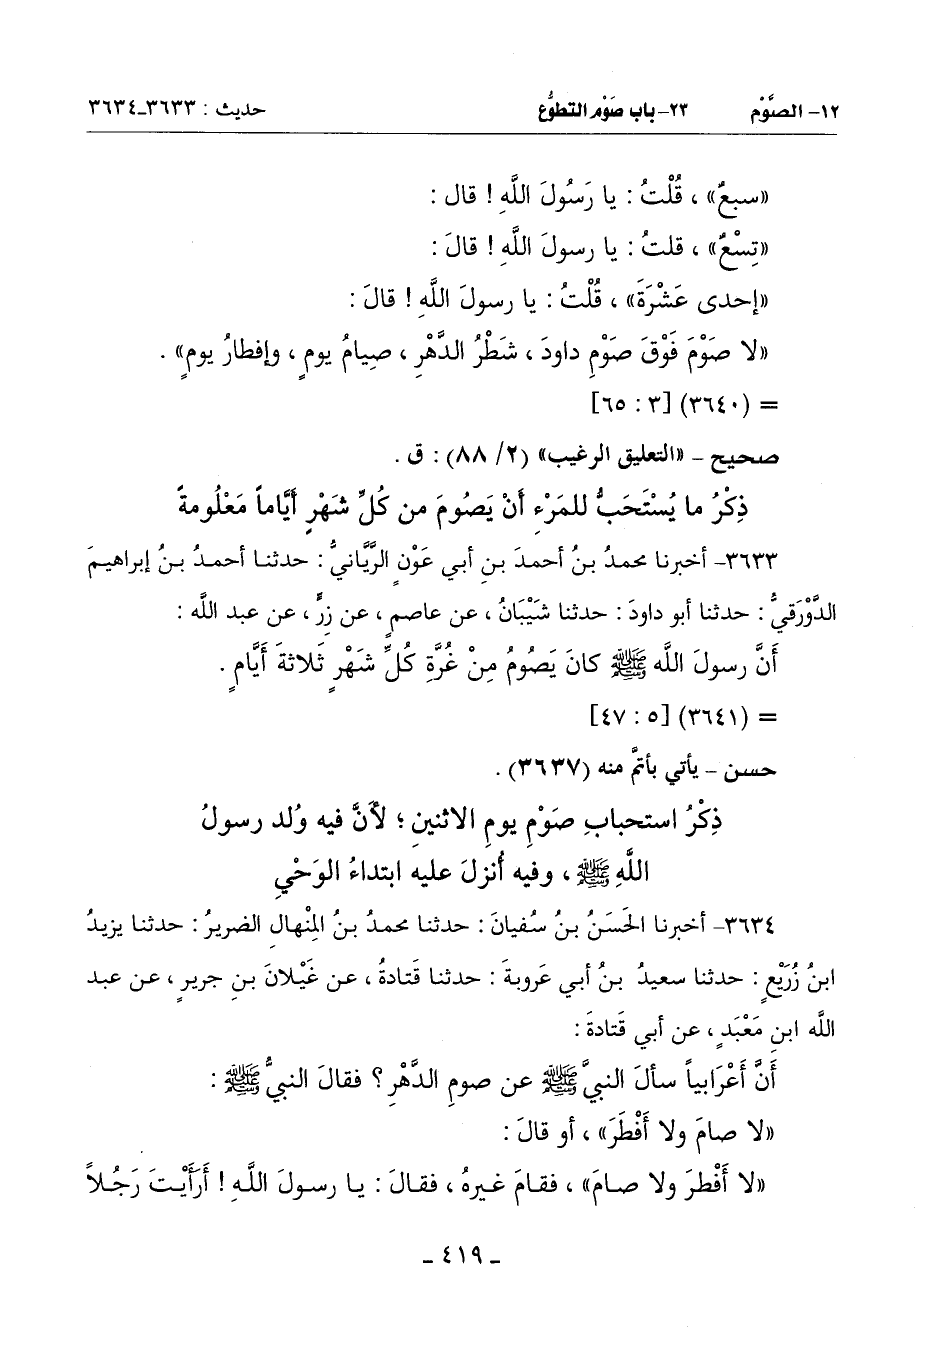 ١٢- الصَّوْم ٢٣- باب صَوْم التطوُّع حديث : ٣٦٣٣-٣٦٣٤
«سبعٌ» ، قُلْتُ : يا رَسُولَ اللَّهِ ! قال :
«تِسْعٌ» ، قلتُ : يا رسولَ اللَّهِ ! قالَ :
«إحدى عَشْرَةَ» ، قُلْتُ : يا رسولَ اللَّهِ ! قالَ :
«لا صَوْمَ فَوْقَ صَوْمِ داودَ ، شَطْرُ الدَّهْرِ ، صِيامُ يومٍ ، وإفطارُ يومٍ» .
= (٣٦٤٠) [٣ : ٦٥]
صحيح - «التعليق الرغيب» (٢/ ٨٨) : ق .
ذِكْرُ ما يُسْتَحَبُّ للمَرْءِ أَنْ يَصُومَ من كُلِّ شَهْرٍ أيَّاماً مَعْلُومةً
٣٦٣٣- أخبرنا محمدُ بنُ أحمدَ بنِ أبي عَوْنٍ الرَّيَّانيُّ : حدثنا أحمدُ بنُ إبراهيمَ
الدَّوْرَقيُّ : حدثنا أبو داودَ : حدثنا شَيْبَانُ ، عن عاصمٍ ، عن زِرٍّ ، عن عبد اللَّه :
أَنَّ رسولَ اللَّه ﷺ كانَ يَصُومُ مِنْ غُرَّةِ كُلِّ شَهْرٍ ثَلاثةَ أَيَّامٍ .
= (٣٦٤١) [٥ : ٤٧]
حسن - يأتي بأتمَّ منه (٣٦٣٧) .
ذِكْرُ استحبابِ صَوْمِ يومِ الاثنينِ ؛ لأَنَّ فيه وُلد رسولُ
اللَّهِ ﷺ ، وفيه أُنزلَ عليه ابتداءُ الوَحْيِ
٣٦٣٤- أخبرنا الحَسَنُ بنُ سُفيانَ : حدثنا محمدُ بنُ المِنْهالِ الضريرُ : حدثنا يزيدُ
ابنُ زُرَيْعٍ : حدثنا سعيدُ بنُ أبي عَروبةَ : حدثنا قَتادةُ ، عن غَيْلانَ بنِ جريرٍ ، عن عبد
اللَّه ابنِ مَعْبَدٍ ، عن أبي قَتادةَ :
أَنَّ أَعْرَابياً سألَ النبيَّ ﷺ عن صومِ الدَّهْرِ ؟ فقالَ النبيُّ ﷺ :
«لا صامَ ولا أَفْطَرَ» ، أو قالَ :
«لا أَفْطرَ ولا صامَ» ، فقامَ غيرهُ ، فقالَ : يا رسولَ اللَّهِ ! أَرَأَيْتَ رَجُلاً
- ٤١٩ -